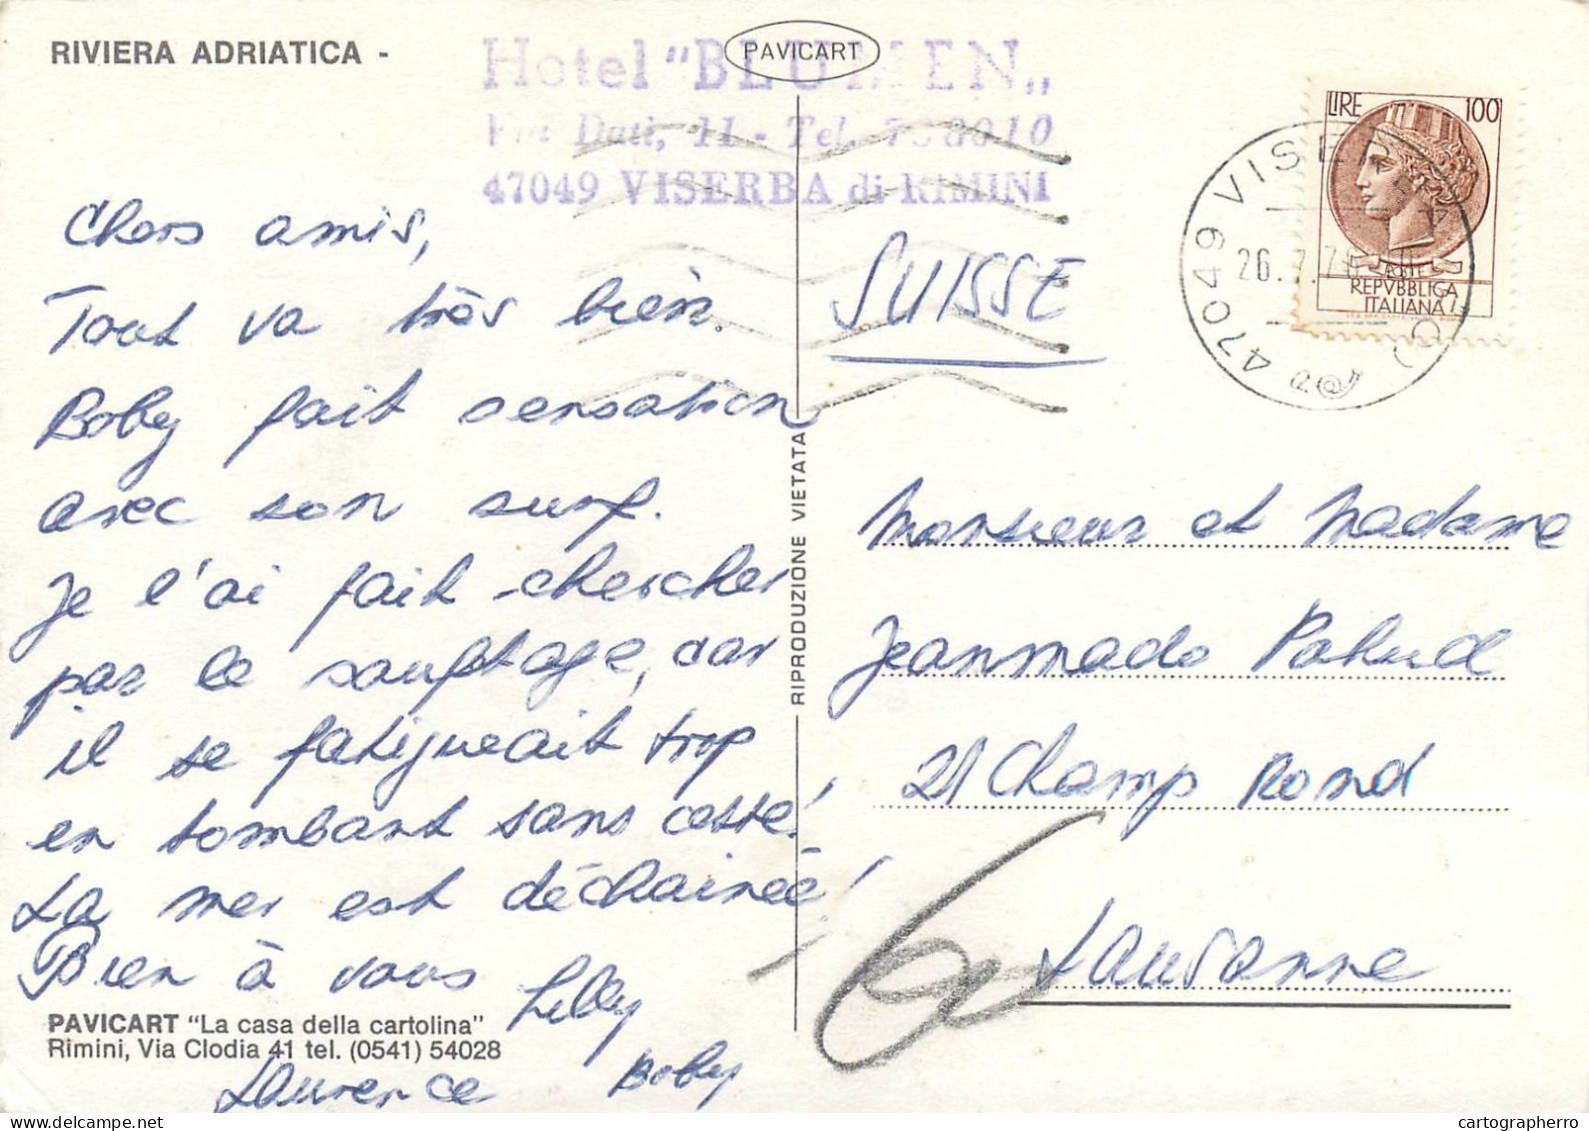 RIVIERA ADRIATICA -
PAVICART
Hotel "BLUMEN"
Via Dati, 11 - Tel.
47049 VISERBA di RIMINI
LIRE 100
POSTE
REPVBBLICA
ITALIANA
47049 VISERBA (FO)
26.7.
Chers amis,
Tout va très bien.
Boby fait sensation
avec son surf.
Je l'ai fait chercher
par le sauftage, car
il se fatigueait trop
en tombant sans cesse!
La mer est déchainée!
Bien à vous Lilly
Laurence Boby
PAVICART "La casa della cartolina"
Rimini, Via Clodia 41 tel. (0541) 54028
RIPRODUZIONE VIETATA
SUISSE
Monsieur et Madame
Jeanmado Pahud
21 Champ Rond
Lausanne
cartographerro